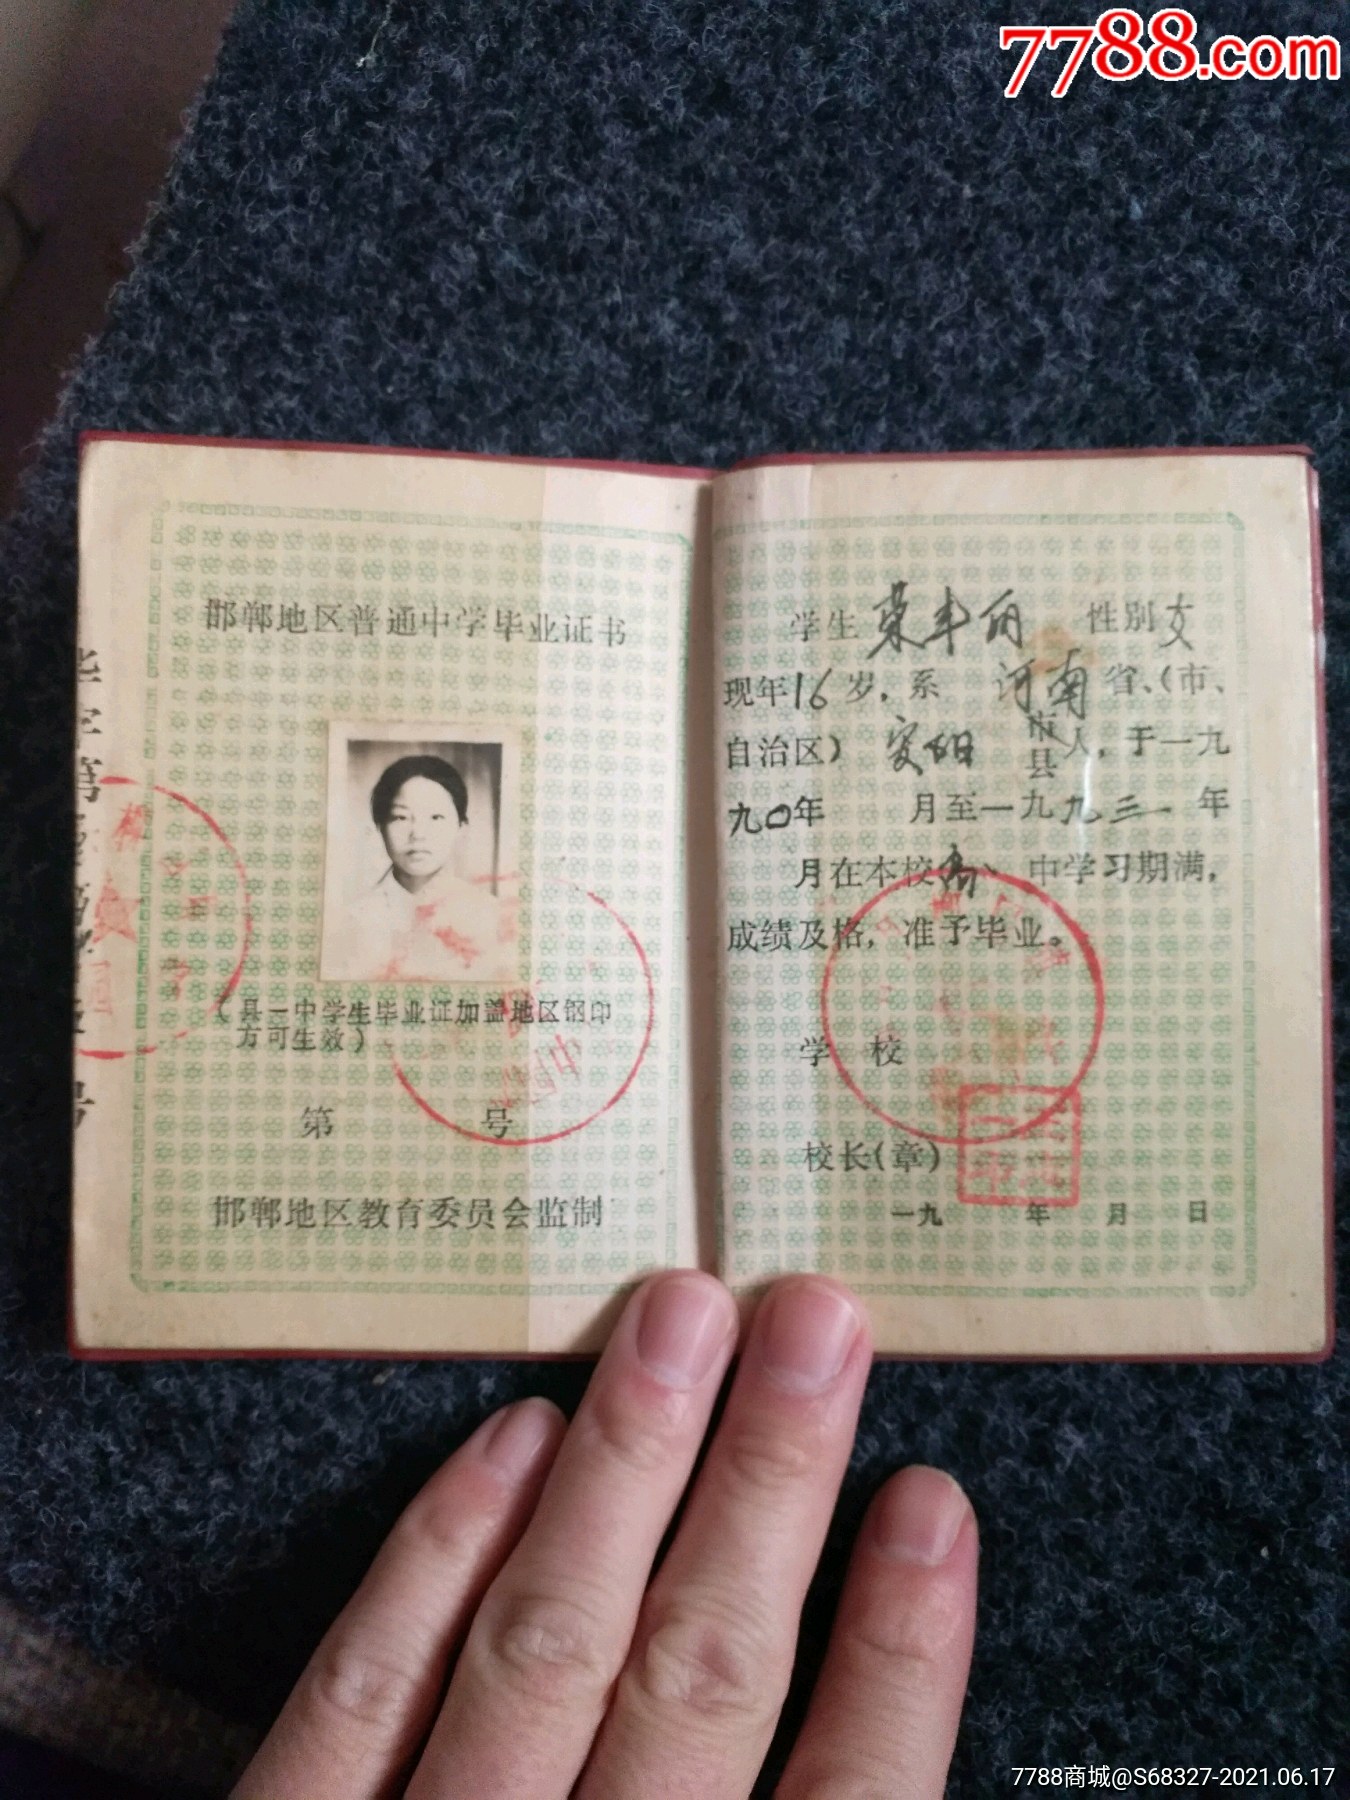 7788.com
邯郸地区普通中学毕业证书
(县一中学生毕业证加盖地区钢印
方可生效)
第 号
邯郸地区教育委员会监制
学生 性别女
现年16岁,系 河南省、(市、
自治区) 安阳 市县人,于一九
九〇年 月至一九九三年
月在本校高中学习期满,
成绩及格,准予毕业。
学 校
校长(章)
一九 年 月 日
7788商城@S68327-2021.06.17